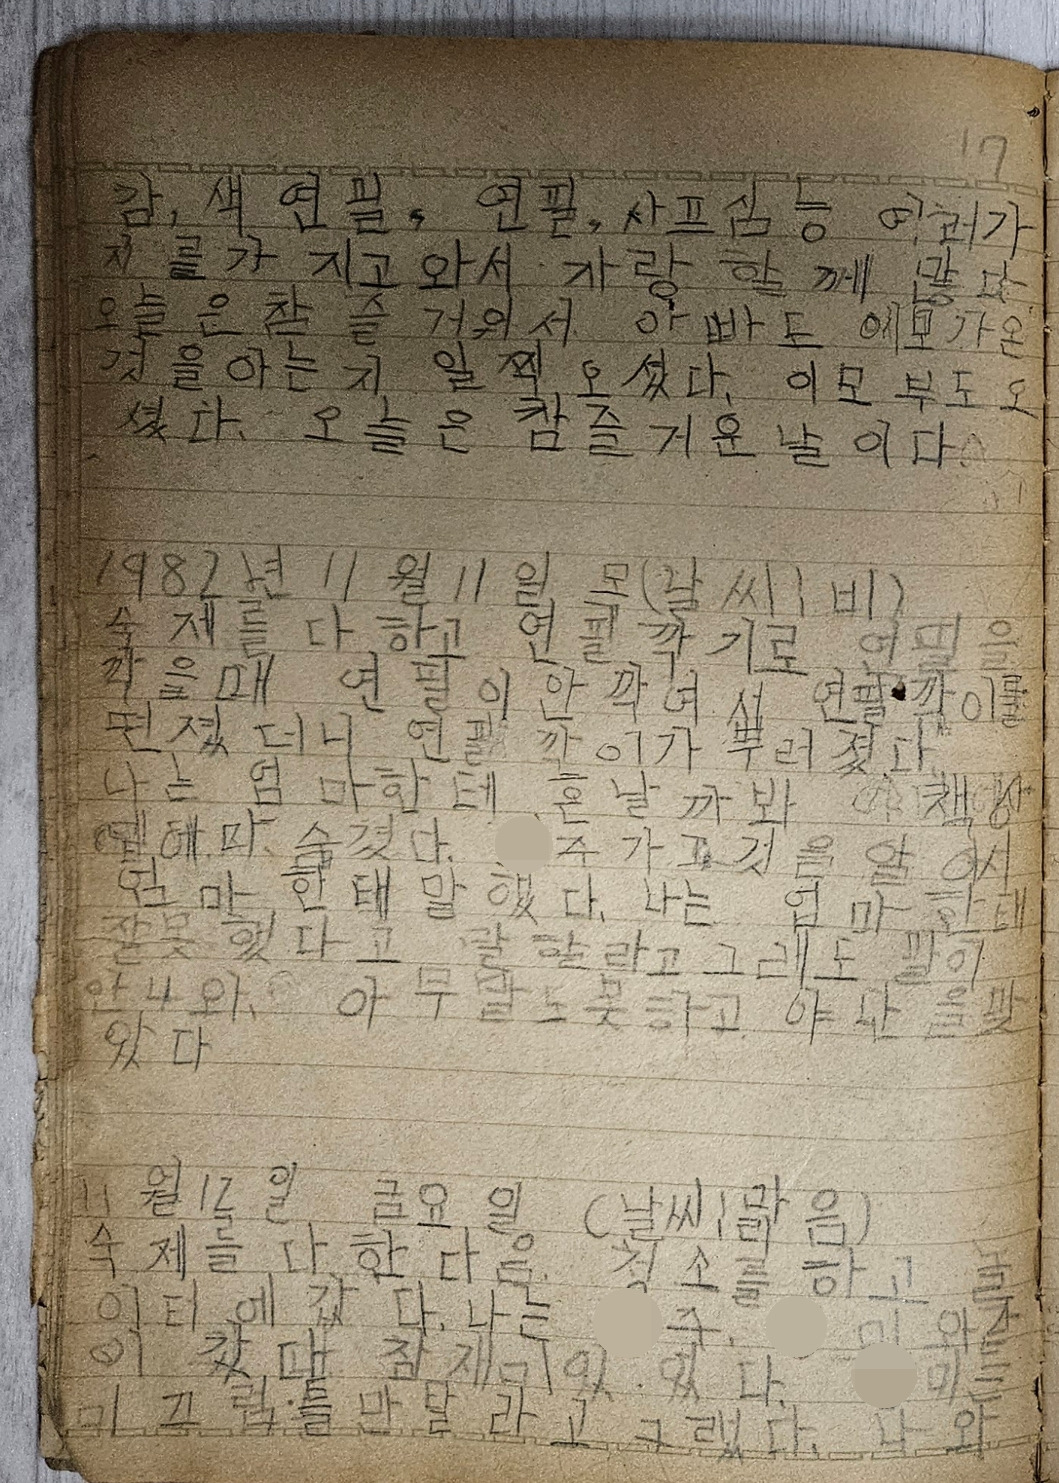 17
감, 색 연필, 연필, 사프심 능 여러가
지를가 지고 와서 자랑 할께 많다
오늘은 참 즐 거워서 아빠도 에모가온
것을아는지 일찍 오셨다. 이모부도오
셨다. 오늘은 참즐거운날이다.
1982년 11월 11일 모(날씨: 비)
숙제를 다 하고 연필깍기로 연필을
깍을때 연필이 안깍여서 연필깍이를
떤졌더니 연필깍이가 뿌러졌다
나는 엄마한테 혼날까봐 책상
숨겼다. 주가 고것을 알아서
엄마 한태 말했다. 나는 엄마 한테
잘못 했다고 말할라고 그래도 말이
안나와. 아무말도못하고 야단을맞
았다
11월 12일 금요일 (날씨: 맑음)
숙제를 다 한 다음. 청소를 하고 놀
이터에 갔다. 나는 주, 미와같
이 갔다 참 재미있 었다. 미는
미끄럼틀만탈라고 그랬다. 나와